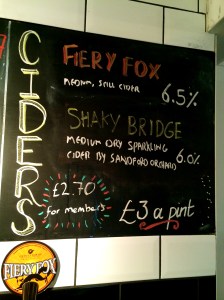 CIDERS
FIERY FOX
MEDIUM, STILL CIDER
6.5%
SHAKY BRIDGE
MEDIUM DRY SPARKLING
CIDER BY SANDFORD ORCHARDS
6.0%
£2.70
for members
£3 a pint
FIERY FOX